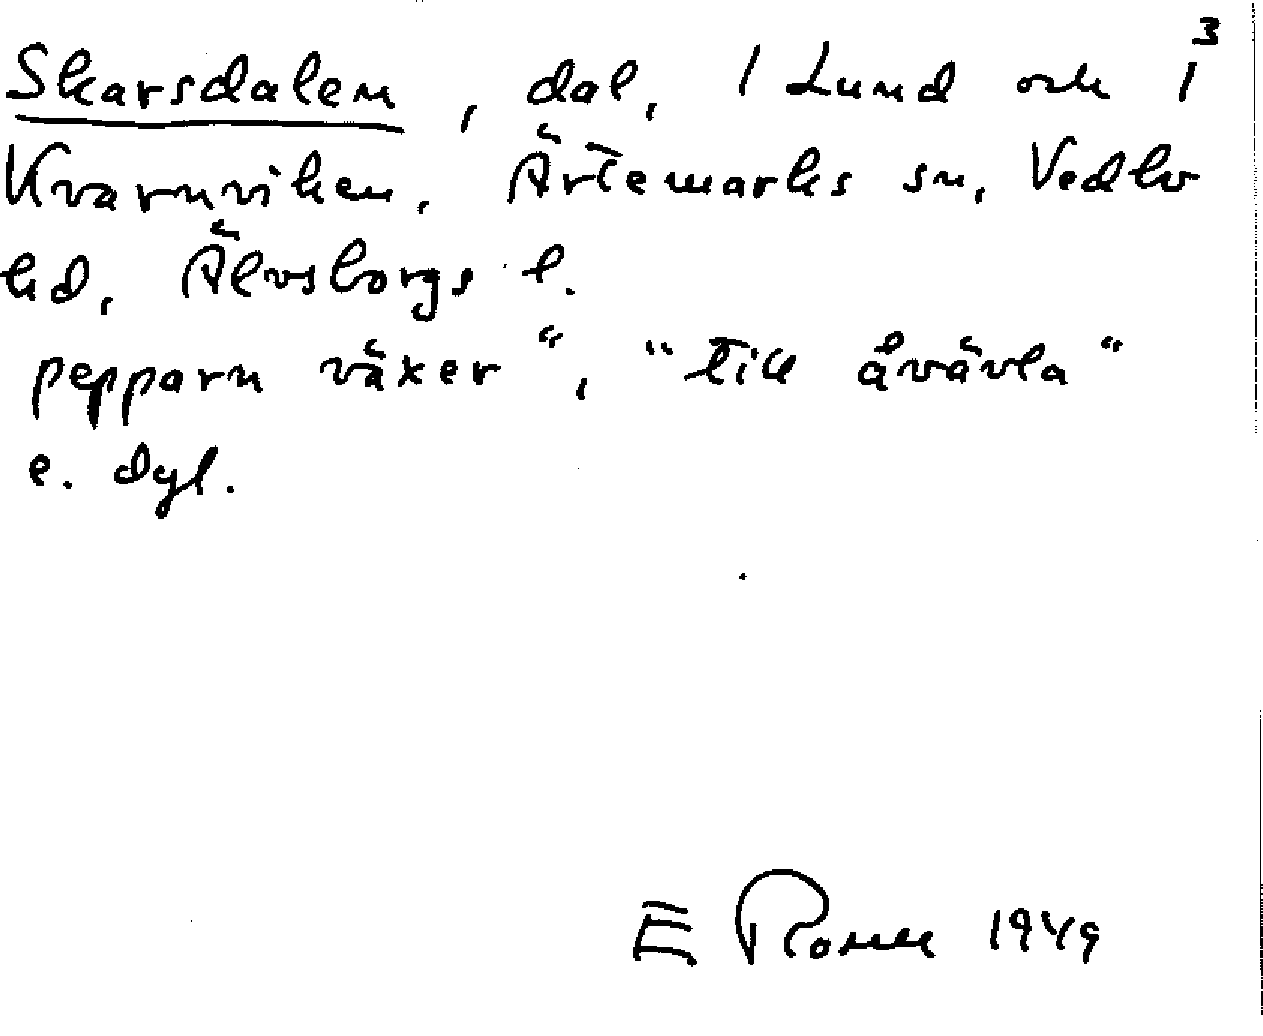 3
Skarsdalen, dal, 1 Lund och 1
Kvarnviken, Ärtemarks sn, Vedbo
hd, Älvsborgs l.
pepparn växer", "till åvävla"
e. dyl.
E 1949